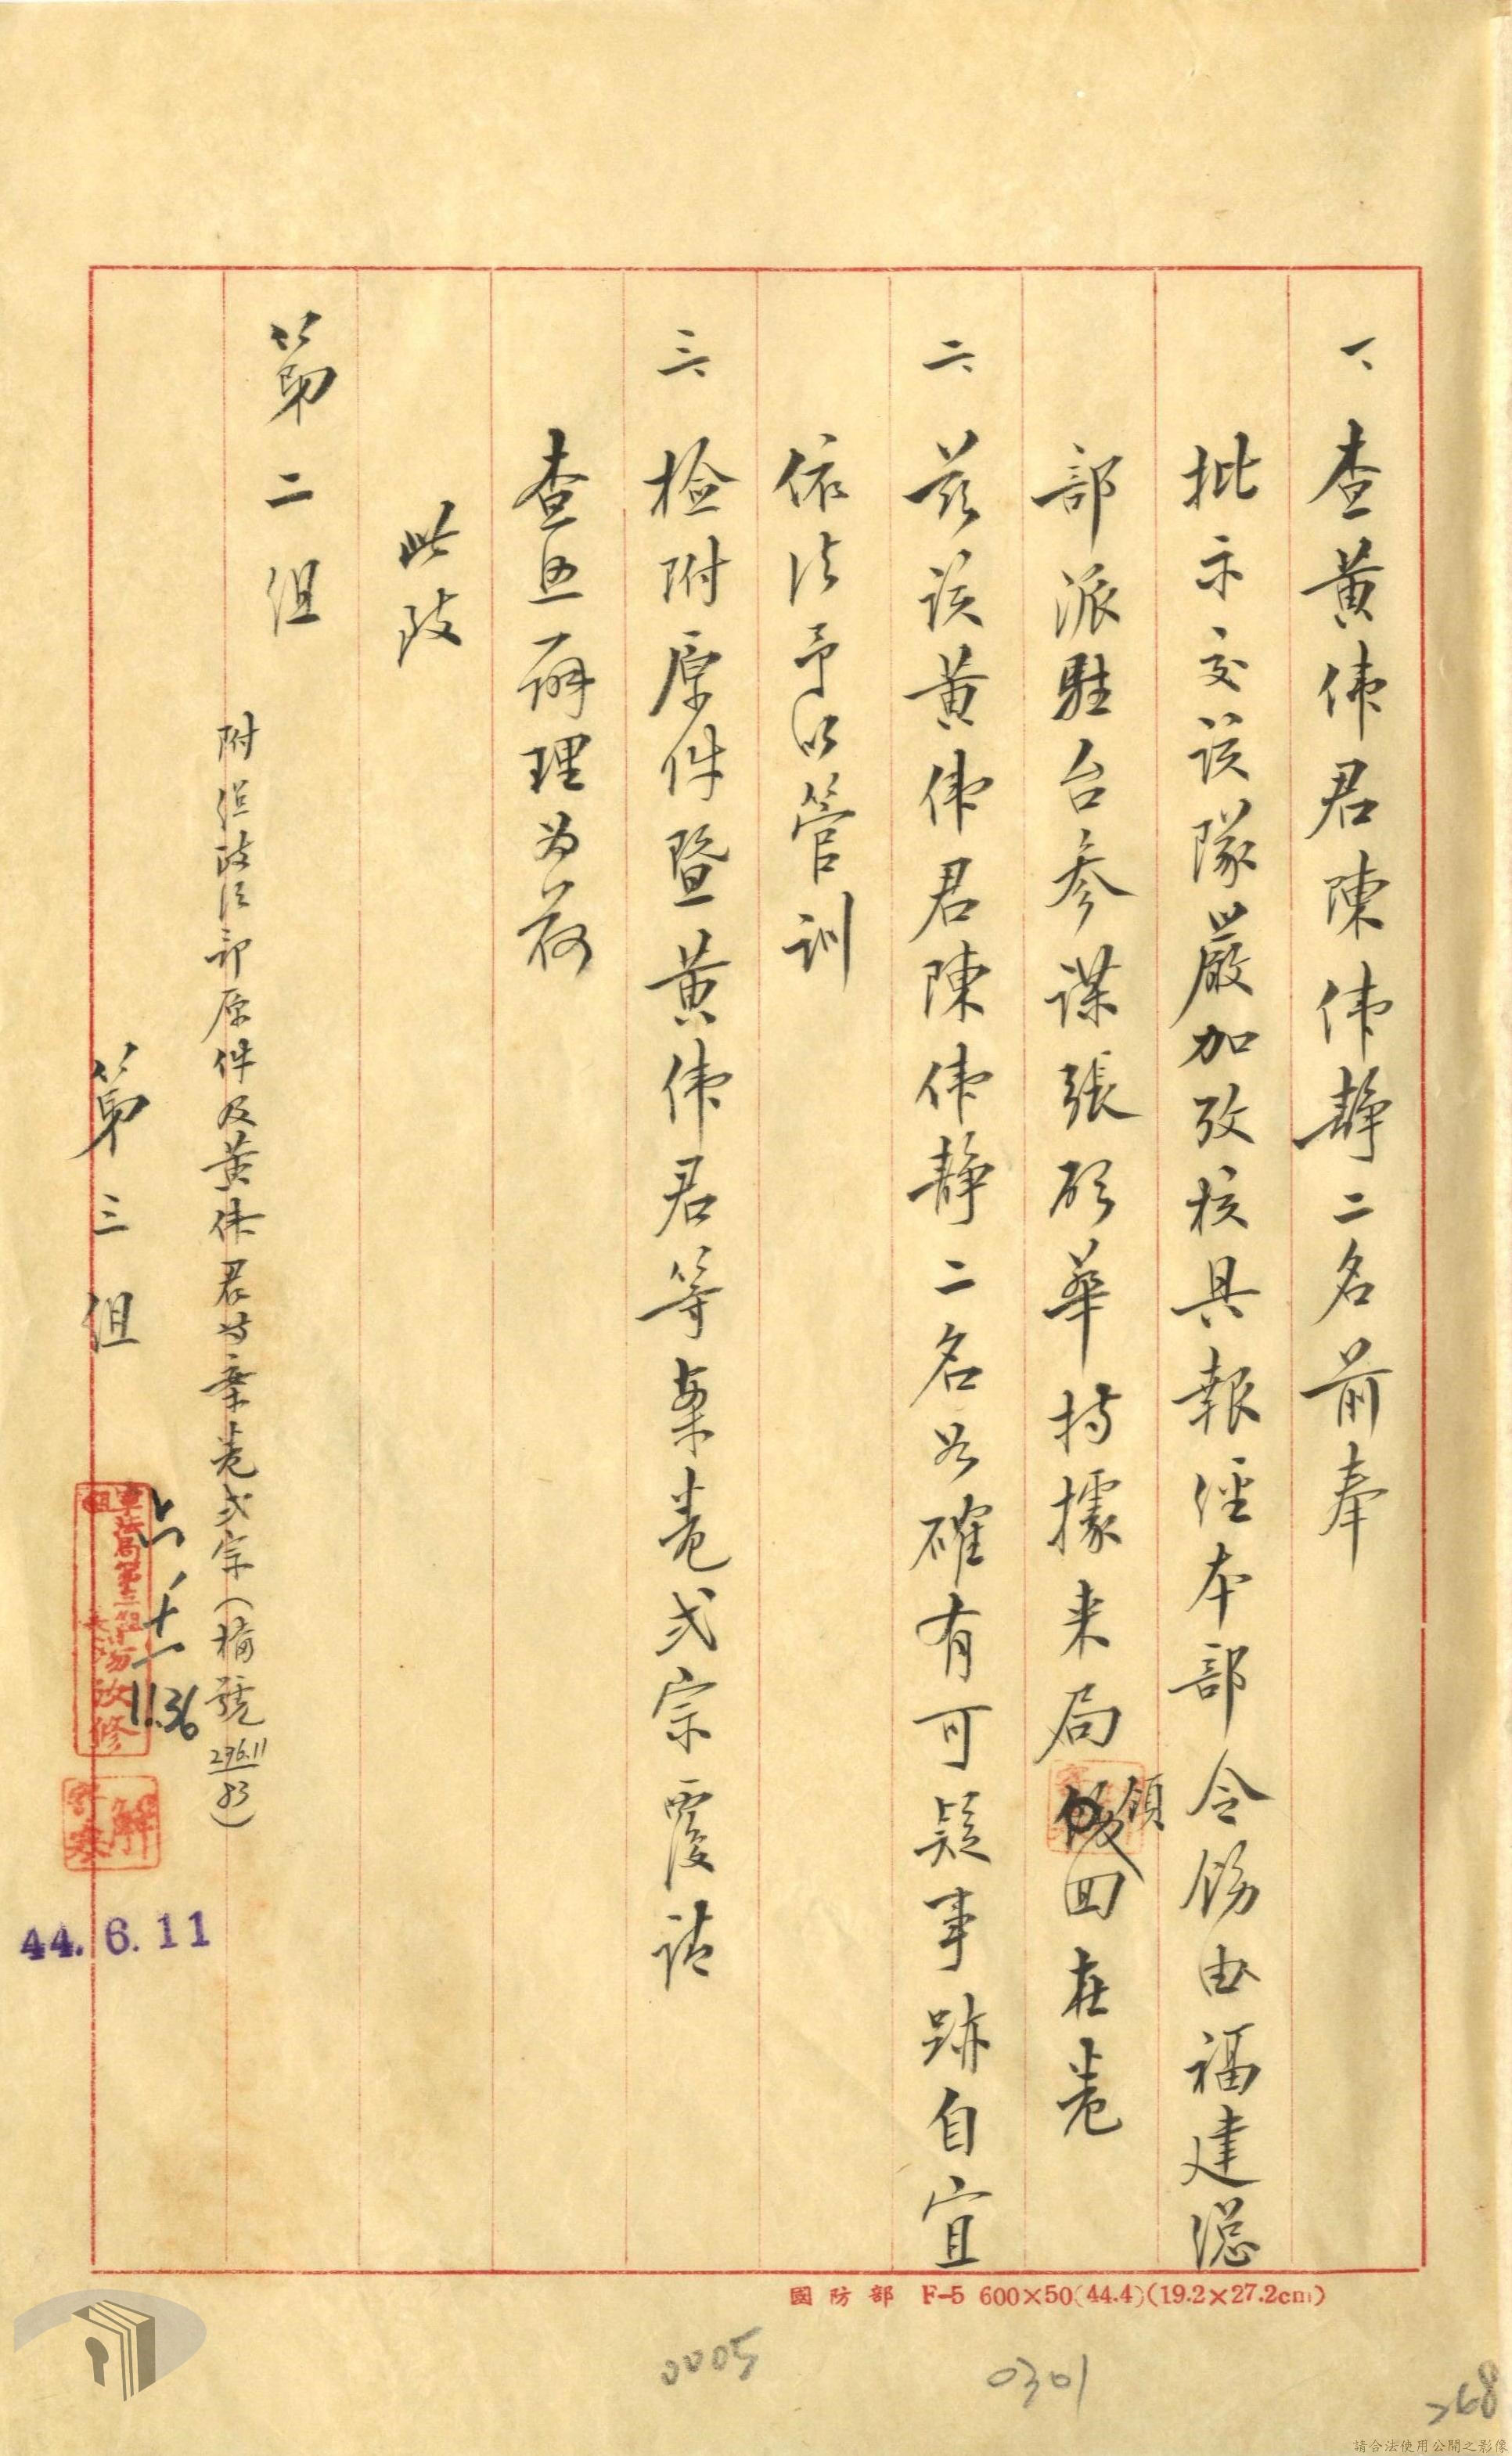 一、查黃偉君陳偉靜二名前奉
批示交該隊嚴加攷核具報經本部令飭由福建總
部派駐台參謀張 華持據来局領回在卷
二、茲該黃偉君陳偉靜二名如確有可疑事跡自宜
依法予以管訓
三、檢附原件暨黃偉君等案卷弍宗覆請
查照辦理為荷
此致
第二組
附還政治部原件及黃偉君等案卷弍宗(檔號 276.11/83)
第三組
軍法局第三組組長 汝修
六、十一
1136
44.6.11
國防部 F-5 600×50(44.4)(19.2×27.2cm)
0005
0301
268
請合法使用公開之影像